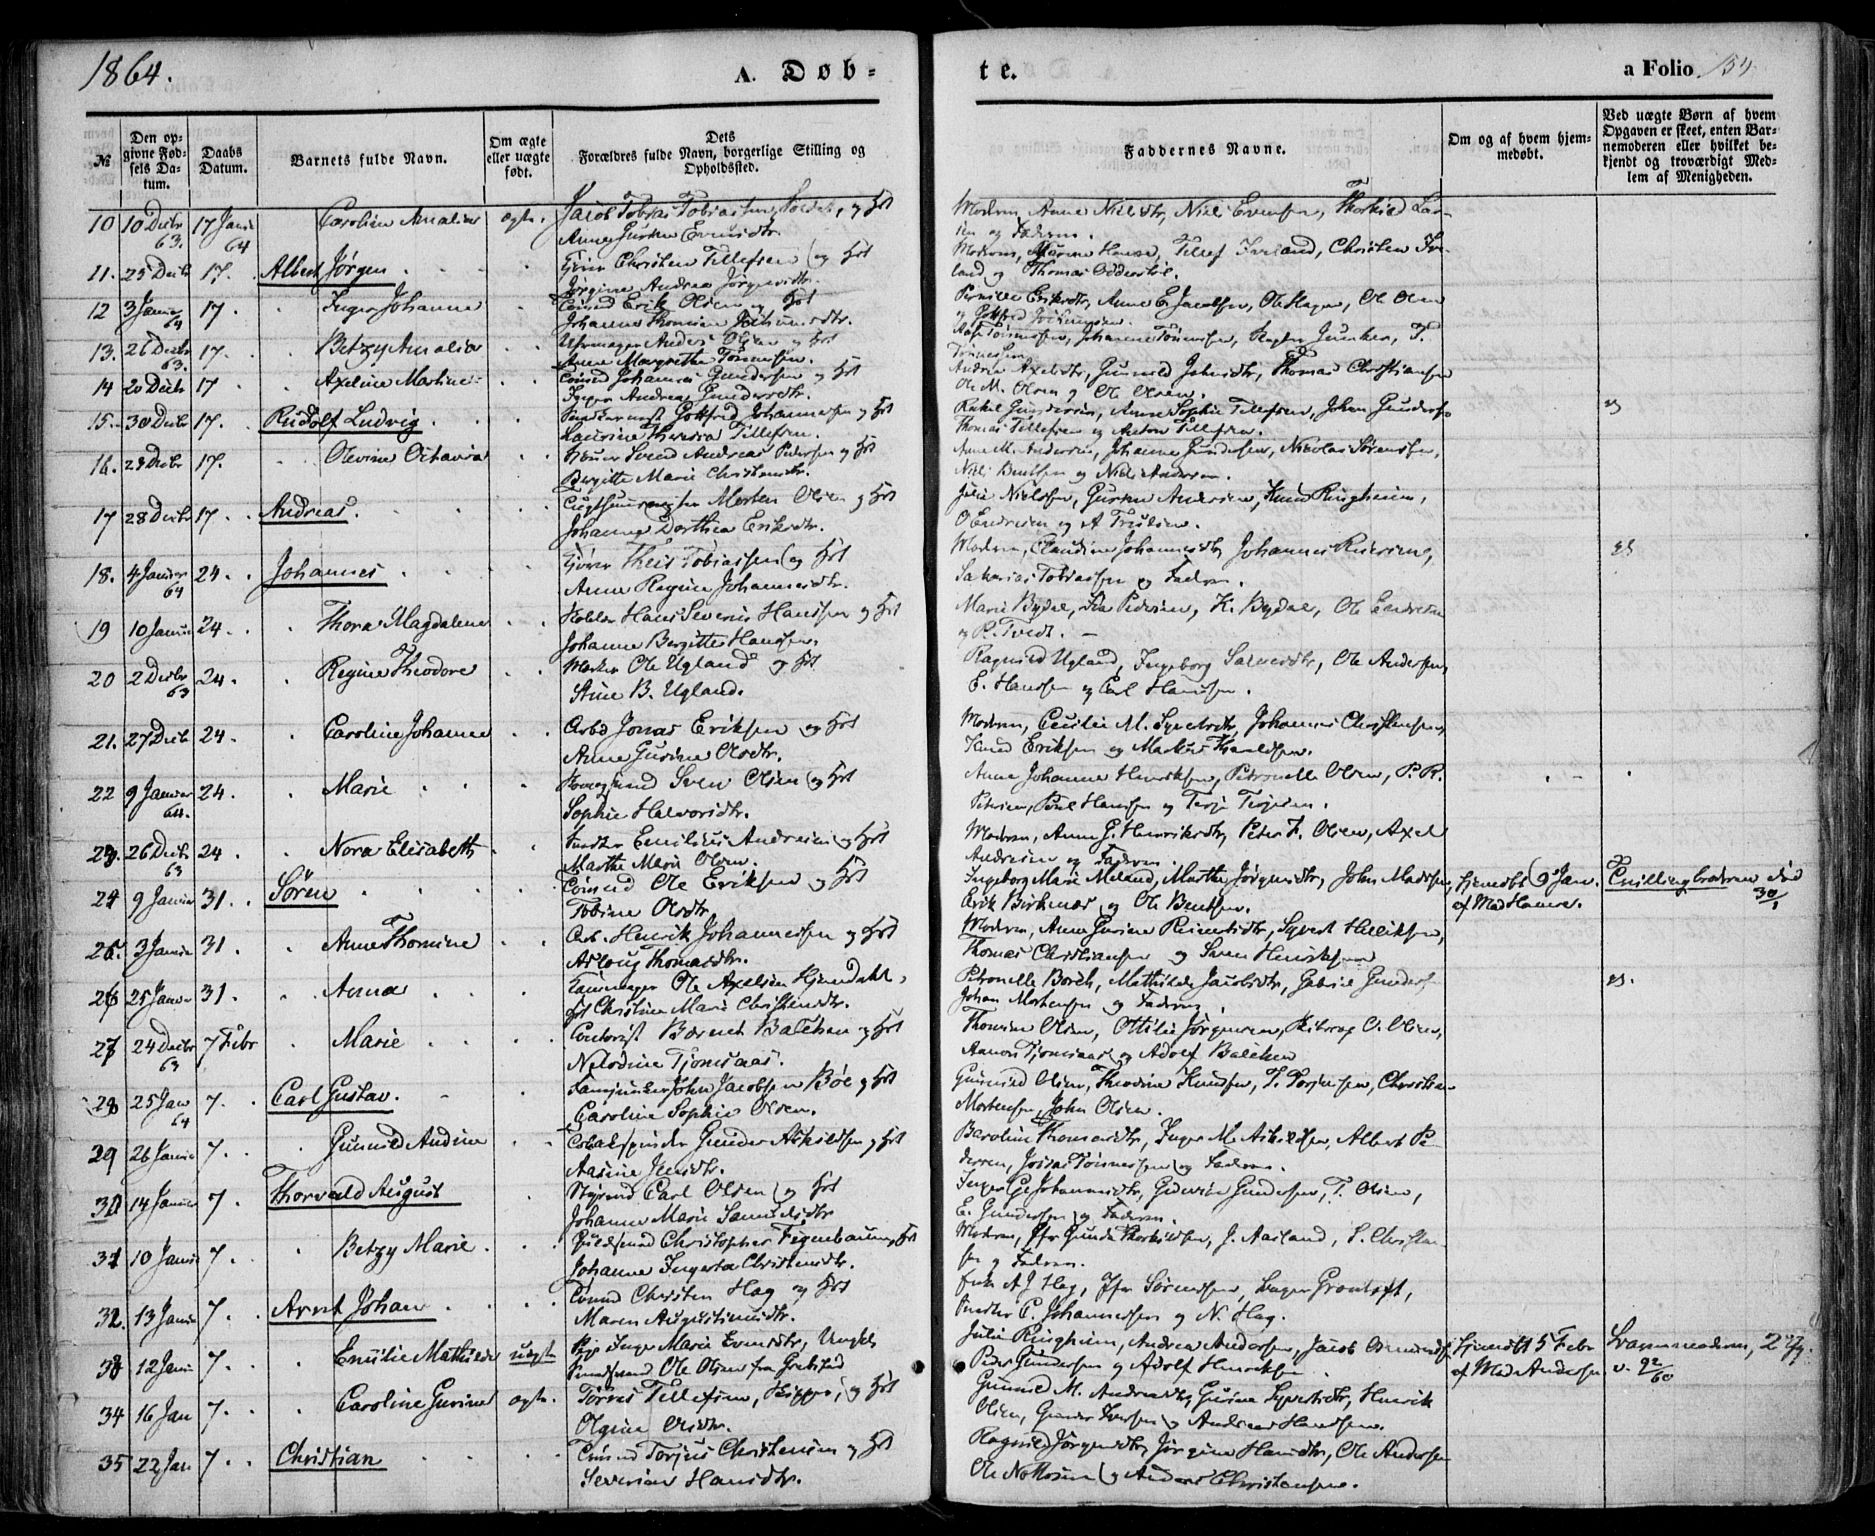 1864.
A. Døb-
te.
a Folio 154
№
Den opgivne Fødsels Datum.
Daabs Datum.
Barnets fulde Navn.
Om ægte eller uægte født.
Dets Forældres fulde Navn, borgerlige Stilling og Opholdssted.
Faddernes Navne.
Om og af hvem hjemmedøbt.
Ved uægte Børn af hvem Opgaven er skeet, enten Barnemoderen eller hvilket bekjendt og troværdigt Medlem af Menigheden.
10 10 Decbr 63. 17 Janu 64 Caroline Amalia ægte. Jacob Tobias Tobiassen, og Hst
Anne Gurine Evensdtr.
Moderen, Anne Nielsdtr, Niels Evensen, Thorkild Lar-
sen og Faderen.
11. 25 Decbr 17. Albert Jørgen Christen Tellefsen og Hst
Jørgine Andrea Jørgensdtr.
Moderen, Hansen, Tellef Iveland, Christen Ive-
land og Thomas Odderstøl.
12 3 Januar 64 17. Inger Johanne Erik Olsen og Hst
Johanne Thomine Jochumsdtr.
Pernille Eriksdtr, Anne E. Jacobsen, Ole Hagen, Ol Olsen
og Gotfred
13. 26 Decbr 63. 17. Betzy Amalia Uhrmager Anders Olsen og Hst
Anne Margrethe Tønnesen.
Tønnesen, Johanne Tønnesen, Junker, T.
Tønnesen
14 20 Decbr 17 Axeline Martine Johannes Gundersen og Hst
Inger Andrea Gundersdtr.
Andrea Axelsdtr, Gunild Johnsdtr, Thomas Christiansen
Ole M. Olsen og Ol Olsen.
15. 30 Decbr 17. Rudolf Ludvig Gotfred Johannesen og Hst
Laurine Theresia Tellefsen.
Rakel Gundersen, Anne Sophie Tellefsen, Johan Gunders.
Thomas Tellefsen og Anton Tellefsen.
16. 28 Decbr 17. Olevine Octavia Svend Andreas Pedersen og Hst
Birgitte Marie Christensdtr.
Anne M. Andersen, Johanne Gundersen, Nicolai Sørensen,
Niels Bentsen og Niels Andersen.
17 28 Decbr 17. Andreas. Morten Olsen og Hst
Johanne Dorthea Eriksdtr.
Julie Nielsen, Gurine Andersen, Knud Ringheim,
O Endresen og A Truelsen.
18. 4 Januar 64 24. Johannes Theis Tobiassen og Hst
Anne Regine Johannesdtr.
Moderen, Claudine Johannesdtr, Johannes
Sakarias Tobiassen og Faderen.
19 10 Januar 24. Thora Magdalene Hans Severin Hansen og Hst
Johanne Bergitte Hansen.
Marie Bydal, Pedersen, K. Bydal, Ole Endresen
og P. Tvedt. –
20 2 Decbr 63 24. Regine Theodore Ole Ugland og Hst
Stine B. Ugland.
Ragnild Ugland, Ingeborg Salvesdtr, Ole Andersen,
E. Hansen og Carl Hansen.
21. 27 Decb 24. Caroline Johanne Arbd Jonas Eriksen og Hst
Anne Gurine Olsdtr.
Moderen, Cecilie M. Syvertsdtr, Johannes Christensen,
Knud Eriksen og Markus Haraldsen.
22 9 Januar 64. 24. Marie Sven Olsen og Hst
Sophie Halvorsdtr.
Anne Johanne Henriksen, Petronelle Olsen, P. R.
Petersen, Poul Hansen og Terje Terjesen.
23. 26 Decbr 63 24 Nora Elisabeth Emilius Andresen og Hst
Marthe Marie Olsen.
Moderen, Anne G. Henriksdtr, Peter F. Olsen, Axel
Andresen og Faderen.
24 9 Januar 31. Søren Ole Eriksen og Hst
Tobine Olsdtr
Ingeborg Marie Meland, Marthe Jørgensdtr, John Madsen,
Erik Birkenæs og Ole Bentsen.
Hjemdbt 9 Jan.
af Mad Hansen.
Tvillingbroderen død
30/1
25. 3 Januar 31. Anne Thomine Arb. Henrik Johannesen og Hst
Aslaug Thomasdtr.
Moderen, Anne Gurine Reiersdtr, Syvert Henriksen,
Thomas Christiansen og Søren Henriksen
26 25 Janur 31. Anna Ole Axelsen Hjemdahl,
Hst Christine Marie Christensdtr.
Petronelle Borch, Mathilde Jacobsdtr, Gabriel Gunders.
Johan Mortensen og Faderen.
27 24 Decbr 63 7 Febr Marie Contorist Bærnt Balchen og Hst
Nilodine Tjomsaas.
Thomine Olsen, Ottilie Jørgensen, O. Olsen,
Aanon Tjomsaas og Adolf Balchen
28 25 Jan 64 7. Carl Gustav. John Jacobsen Bøe og Hst
Caroline Sophie Olsen.
Gunild Olsen, Theodine Knudsen, T. Torjusen, Christian
Mortensen, John Olsen.
29 26 Janua 7. Gunild Andine Gunder Askildsen og Hst
Aasine Jensdtr.
Baroline Thomasdtr, Inger M. Askildsen, Albert Pe-
dersen, Josias Tønnessen og Faderen.
30 14 Januar 7. Thorvald August Carl Olsen og Hst
Johanne Marie Samuelsdtr
Inger G. Johannesdtr, Gurine Gundersen, T. Olsen,
E. Gundersen og Faderen.
31 10 Janua 7. Betzy Marie Christopher Figenbaum og Hst
Johanne Ingerta Christensdtr.
Moderen, Jfr Gunda Thorkildsen, J. Aasland, S. Christen-
sen og Faderen.
32. 13 Janua 7. Arnt Johan Christen Hag og Hst
Maren Augustinusdtr.
Enke A J Hag, Jfr Sørensen, Grontoft,
E. Johannesen og N. Hag.
33 12 Janu 7. Emilie Mathilde uægt Pige Inger Marie Evensdtr, Ungkl
Ole Olsen fra Grebstad
Julie Ringheim, Andrea Andersen, Jacob
Peder Gundersen og Adolf Henriksen
Hjemdbt 5 Febr
af Mad Andersen
Barnemoderen, 2 Gg.
v. 92/60
34 16 Jan 7. Caroline Gurine ægte. Tørres Tellefsen, Skipper, og Hst
Olgine Olsdtr.
Gunild M. Andreasdtr, Gurine Syvertsdtr, Henrik
Olsen, Gunder Iversen og Andreas Hansen.
35 22 Jan 7. Christian Torjus Christensen og Hst
Severine Hansdtr.
Ragnild Jørgensdtr, Jørgine Hansdtr, Ole Andersen
Ole Nottosen og Anders Christensen.